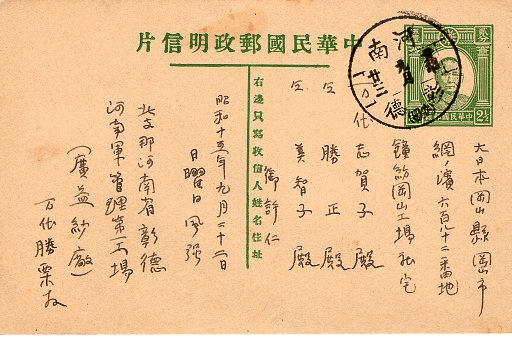 中華民國郵政明信片
河南
彰德
右邊只寫收信人姓名住址
大日本岡山縣岡山市
網ノ濱六百八十二番地
鐘紡岡山工場社宅
万代志賀子殿
仝 勝正殿
仝 美智子殿
御許に
昭和十五年九月二十二日
日曜日 風強
北支那河南省彰德
河南軍管理第一工場
(廣益紗廠)
万代勝